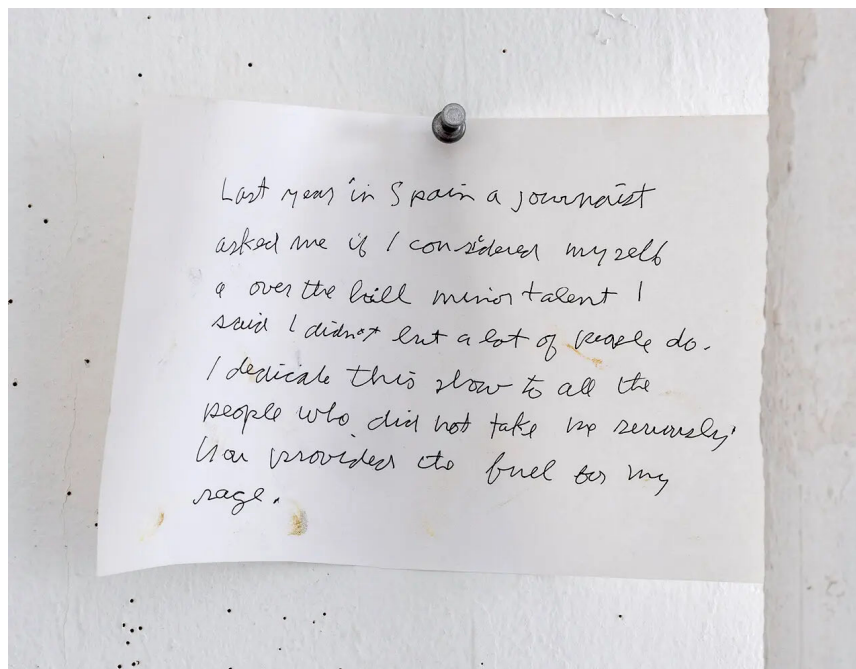 Last year in Spain a journalist
asked me if I considered myself
a over the hill minor talent I
said I didn't but a lot of people do.
I dedicate this show to all the
people who did not take me seriously
You provided the fuel for my
rage.